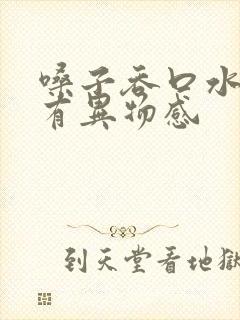 嗓子吞口水
有異物感
到天堂看地獄